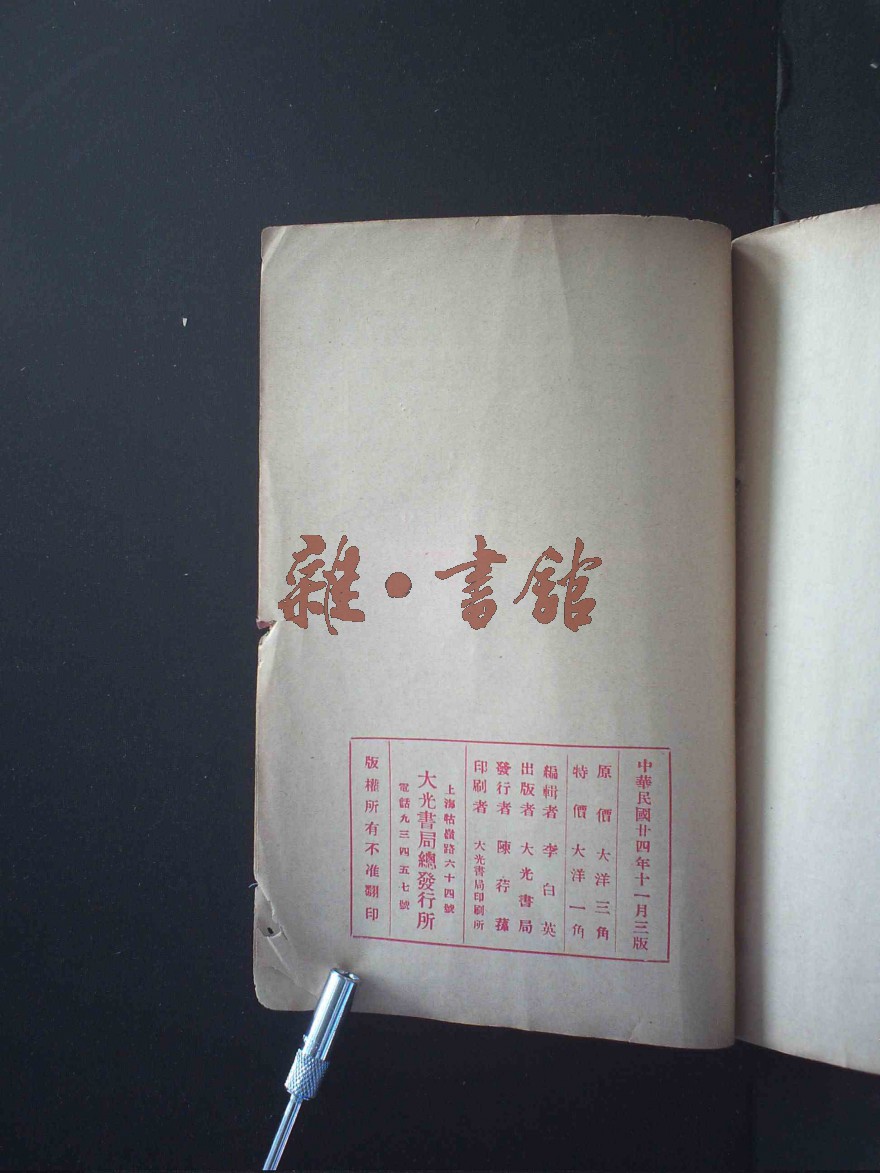 雜·書館
中華民國廿四年十一月三版
原價大洋三角
特價大洋一角
編輯者 李白英
出版者 大光書局
發行者 陳荇蓀
印刷者 大光書局印刷所
上海牯嶺路六十四號
大光書局總發行所
電話九三四五七號
版權所有不准翻印